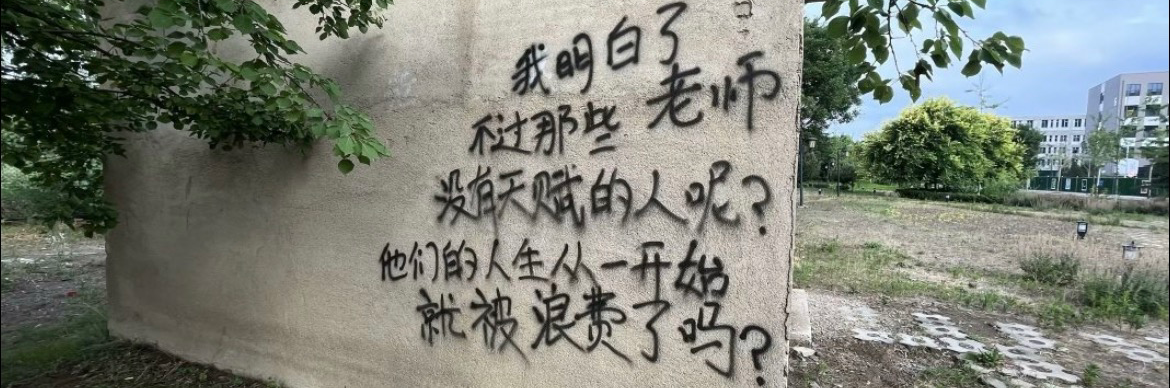 我明白了
老师
不过那些
没有天赋的人呢?
他们的人生从一开始
就被浪费了吗?